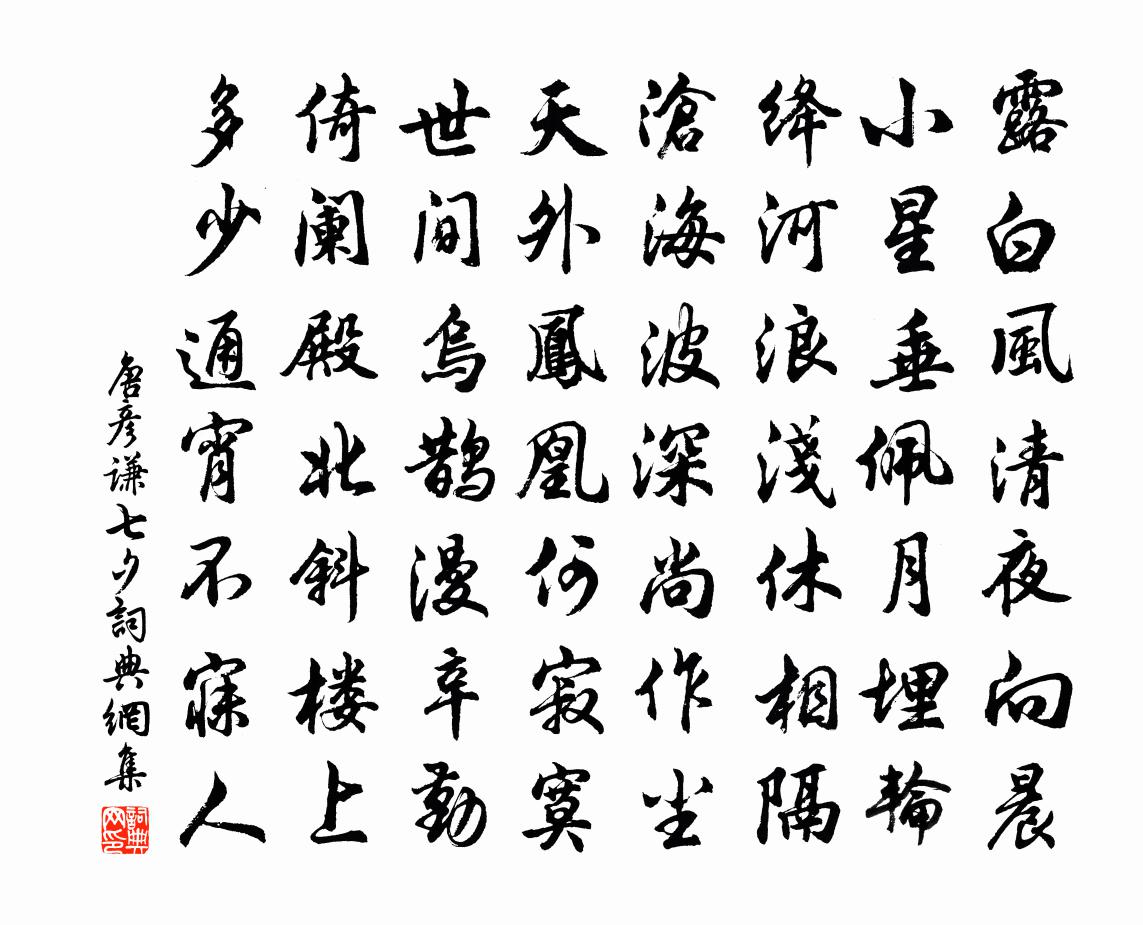 露白風清夜向晨
小星垂佩月埋輪
绛河浪淺休相隔
滄海波深尚作尘
天外鳳凰何寂寞
世间烏鹊漫辛勤
倚阑殿北斜楼上
多少通宵不寐人
唐彦谦七夕詞典網集
詞典网印